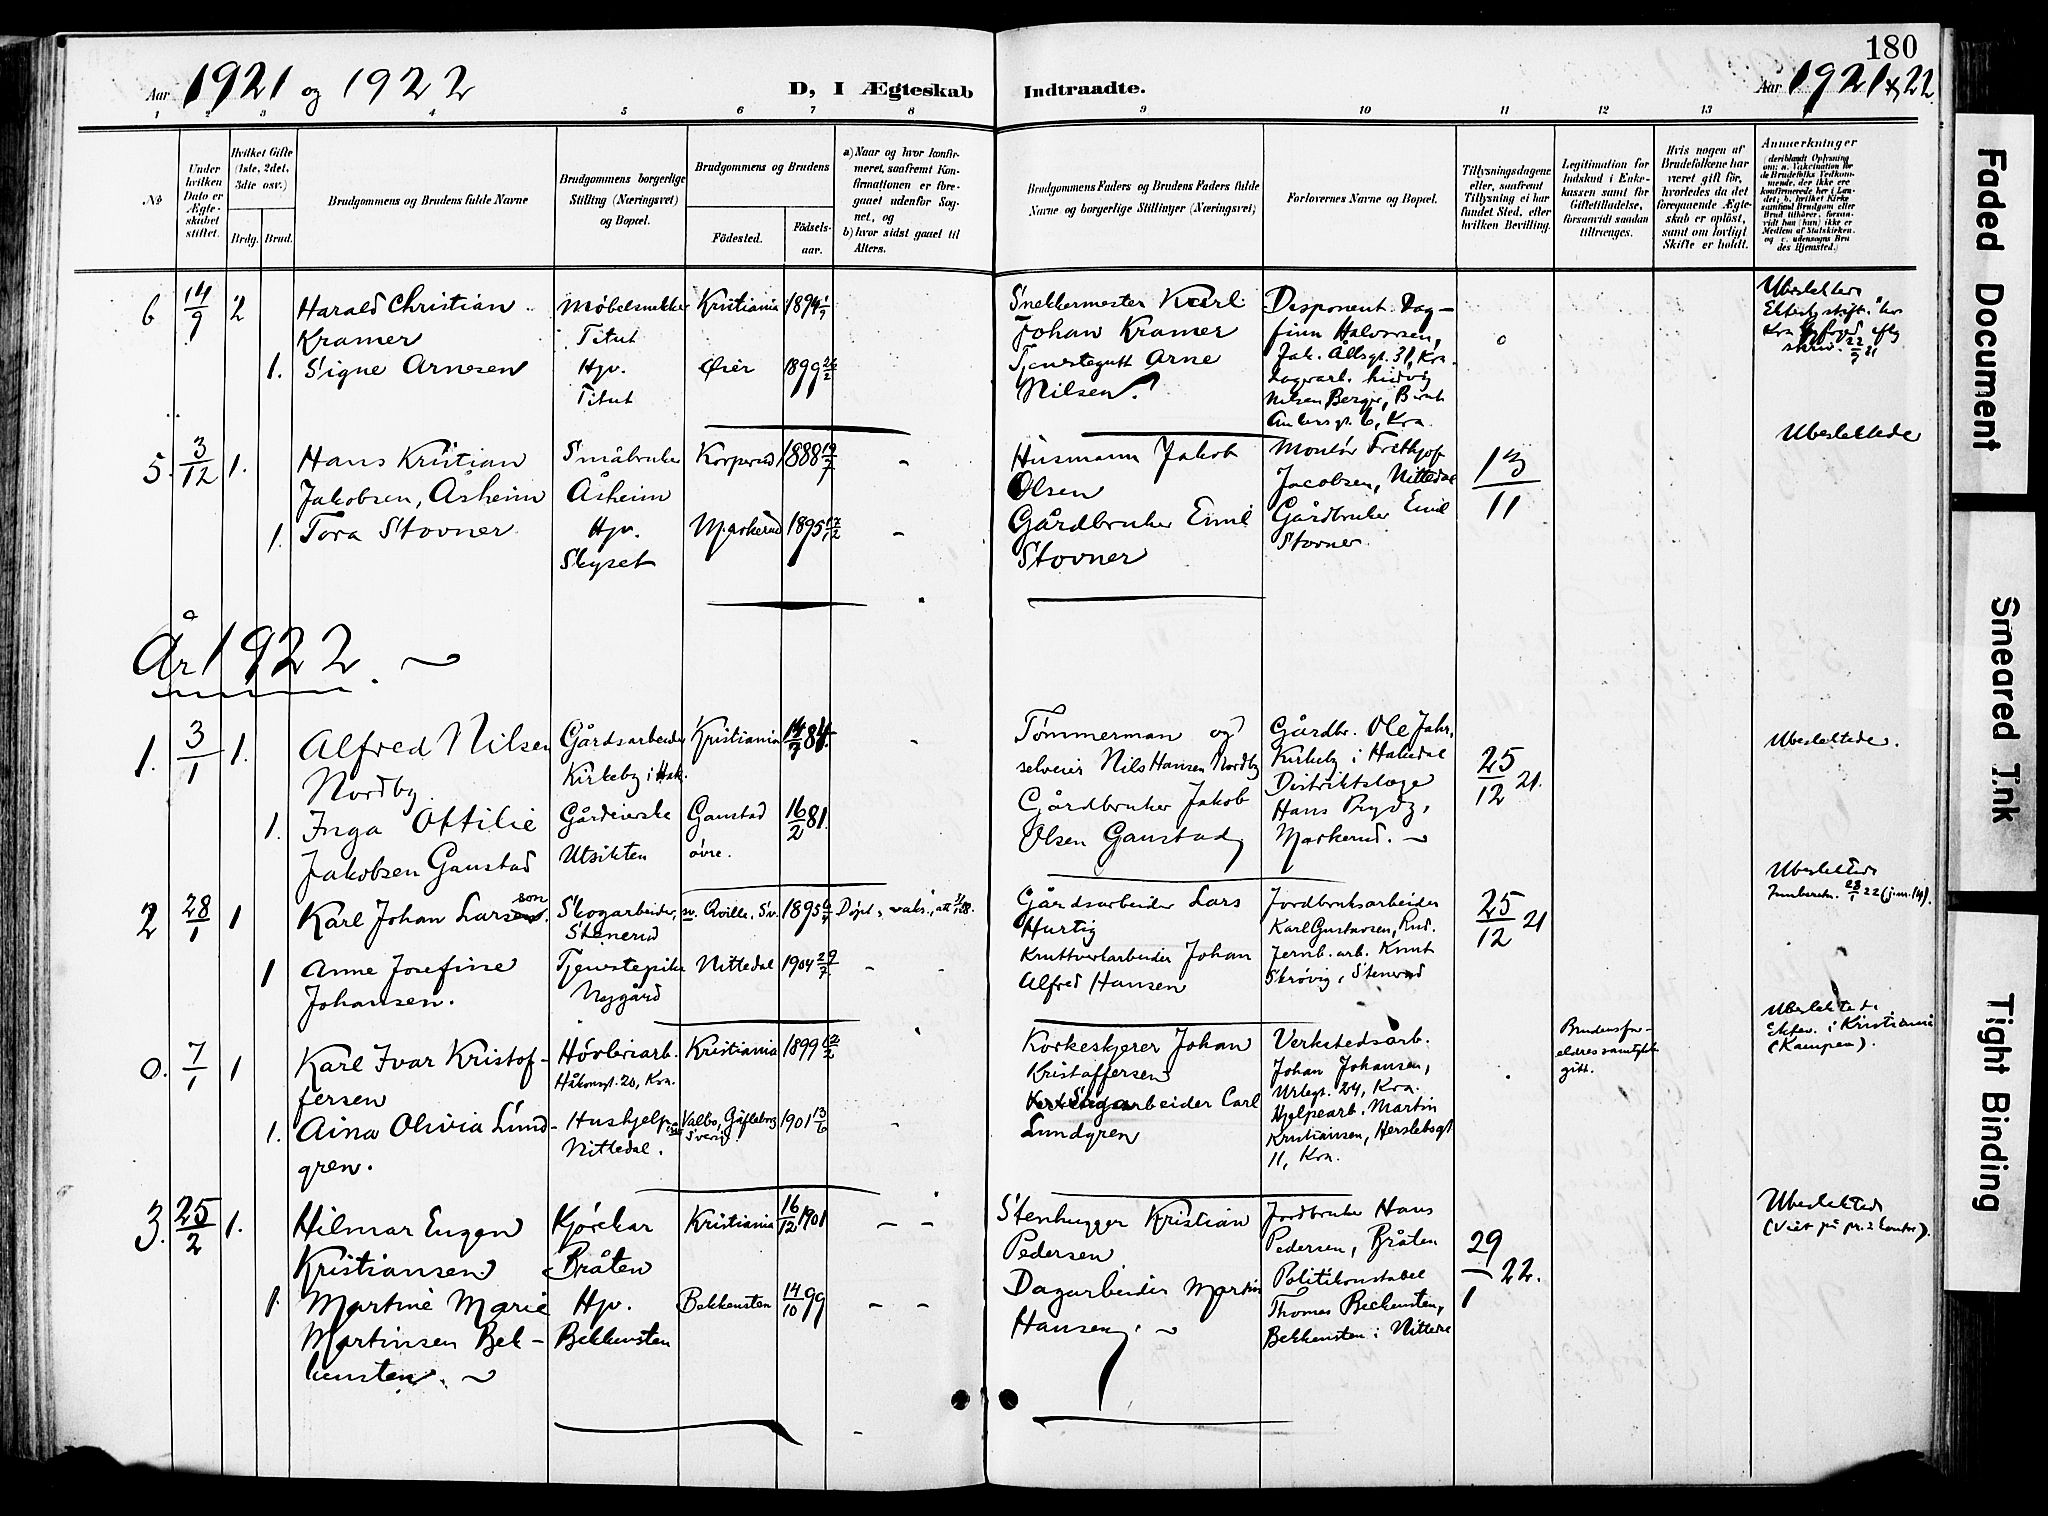 180
Aar 1921 og 1922
D, I Ægteskab
Indtraadte.
Aar 1921 & 22
1 2 3 4 5 6 7 8 9 10 11 12 13
No
Under hvilken Dato er Ægteskabet stiftet.
Hvilket Gifte (1ste, 2det, 3die osv.)
Brdg. Brud.
Brudgommens og Brudens fulde Navne
Brudgommens borgerlige Stilling (Næringsvei) og Bopæl.
Brudgommens og Brudens
Fødested.
Fødselsaar.
a) Naar og hvor konfirmeret, saafremt Konfirmationen er foregaaet udenfor Sognet, og
b) hvor sidst gaaet til Alters.
Brudgommens Faders og Brudens Faders fulde Navne og borgerlige Stillinger (Næringsvei)
Forlovernes Navne og Bopæl.
Tillysningsdagene eller, saafremt Tillysning ei har fundet Sted, efter hvilken Bevilling.
Legitimation for Indskud i Enkekassen samt for Giftetilladelse, forsaavidt saadan tiltrænges.
Hvis nogen af Brudefolkene har været gift før, hvorledes da det foregaaende Ægteskab er opløst, samt om lovligt Skifte er holdt.
Anmerkninger
6 14/9 2
Harald Christian
Kramer
Møbelsnekker
Titut
Kristiania 1894
Snekkermester Karl
Johan Kramer
Disponent Dagfinn Halvorsen,
Jak. Ållsgt. 31, Kra.
Ubeslektede
1. Signe Arnesen
Hjv.
Titut
Øier 1899
Tjenstegutt Arne
Nilsen?
Nilsen Berger,
5. 3/12 1.
Hans Kristian
Jakobsen, Åsheim
Småbruker
Åsheim
Korperud 1888
Husmann Jakob
Olsen
Montør Frithjof
Jacobsen, Nittedal
13/11
Ubeslektede
1. Tora Stovner
Hjv.
Skyset
Markerud 1895
Gårdbruker Emil
Stovner
Gårdbruker Emil
Stovner
År 1922.
1. 3/1 1.
Alfred Nilsen
Nordby
Gårdsarbeider
Kirkeby i Hak.
Kristiania 84.
Tømmerman og
selveier Nils Hansen Nordby
Gårdbr. Ole Jahr,
Kirkeby i Hakedal
25/12 21.
Ubeslektede.
1. Inga Ottilie
Jakobsen Ganstad
Gårdeierske
Utsikten
Ganstad
øvre.
16/2 81.
Gårdbruker Jakob
Olsen Ganstad
Distriktslæge
Hans Prydz,
Markerud.
2 28/1 1
Karl Johan Larsson
Skogarbeider,
Stenerud
1895
Gårdsarbeider Lars
Hurtig
Jordbruksarbeider
Karl Gustavsen, Rud.
25/12 21
Ubeslektede
1 Anne Josefine
Johansen.
Tjenstepike
Nygård
Nittedal 1904
Kruttverkarbeider Johan
Alfred Hansen
Jernb. arb. Knut
Skrøvig, Stenerud
0. 7/1 1
Karl Ivar Kristoffersen
Høvleriarb.
Håkonsgt. 20, Kra.
Kristiania 1899
Korkeskjerer Johan
Kristoffersen
Verkstedsarb.
Johan Johansen,
Urtegt. 24, Kra.
Brudens foreldres samtykke
gitt.
Ubeslektede.
i Kristiania
(Kampen).
1. Aina Olivia Lundgren.
Hushjelp
Nittedal.
Valbo, Gefleborg
Sverig
1901 13/6
arbeider Carl
Lundgren
Hjelpearb. Martin
Kristiansen, Herslebsgt
11, Kra.
3. 25/2 1.
Hilmar Eugen
Kristiansen
Kjørekar
Bråten
Kristiania 16/12 1901
Stenhugger Kristian
Pedersen
Jordbruker Hans
Pedersen, Bråten
29/1 22.
Ubeslektede
(Viet på pr.s kontor).
1. Martine Marie
Martinsen Bekkensten.
Hjv.
Bekkensten
Bekkensten 14/10 99
Dagarbeider Martin
Hansen.
Politikonstabel
Thomas Bekkensten,
Bekkensten i Nittedal
Faded Document
Smeared Ink
Tight Binding